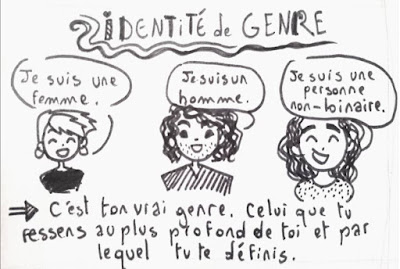 IDENTITÉ de GENRE
Je suis une
femme.
Je suis un
homme.
Je suis une
personne
non-binaire.
⇒ C'est ton vrai genre. Celui que tu
ressens au plus profond de toi et par
lequel tu te définis.